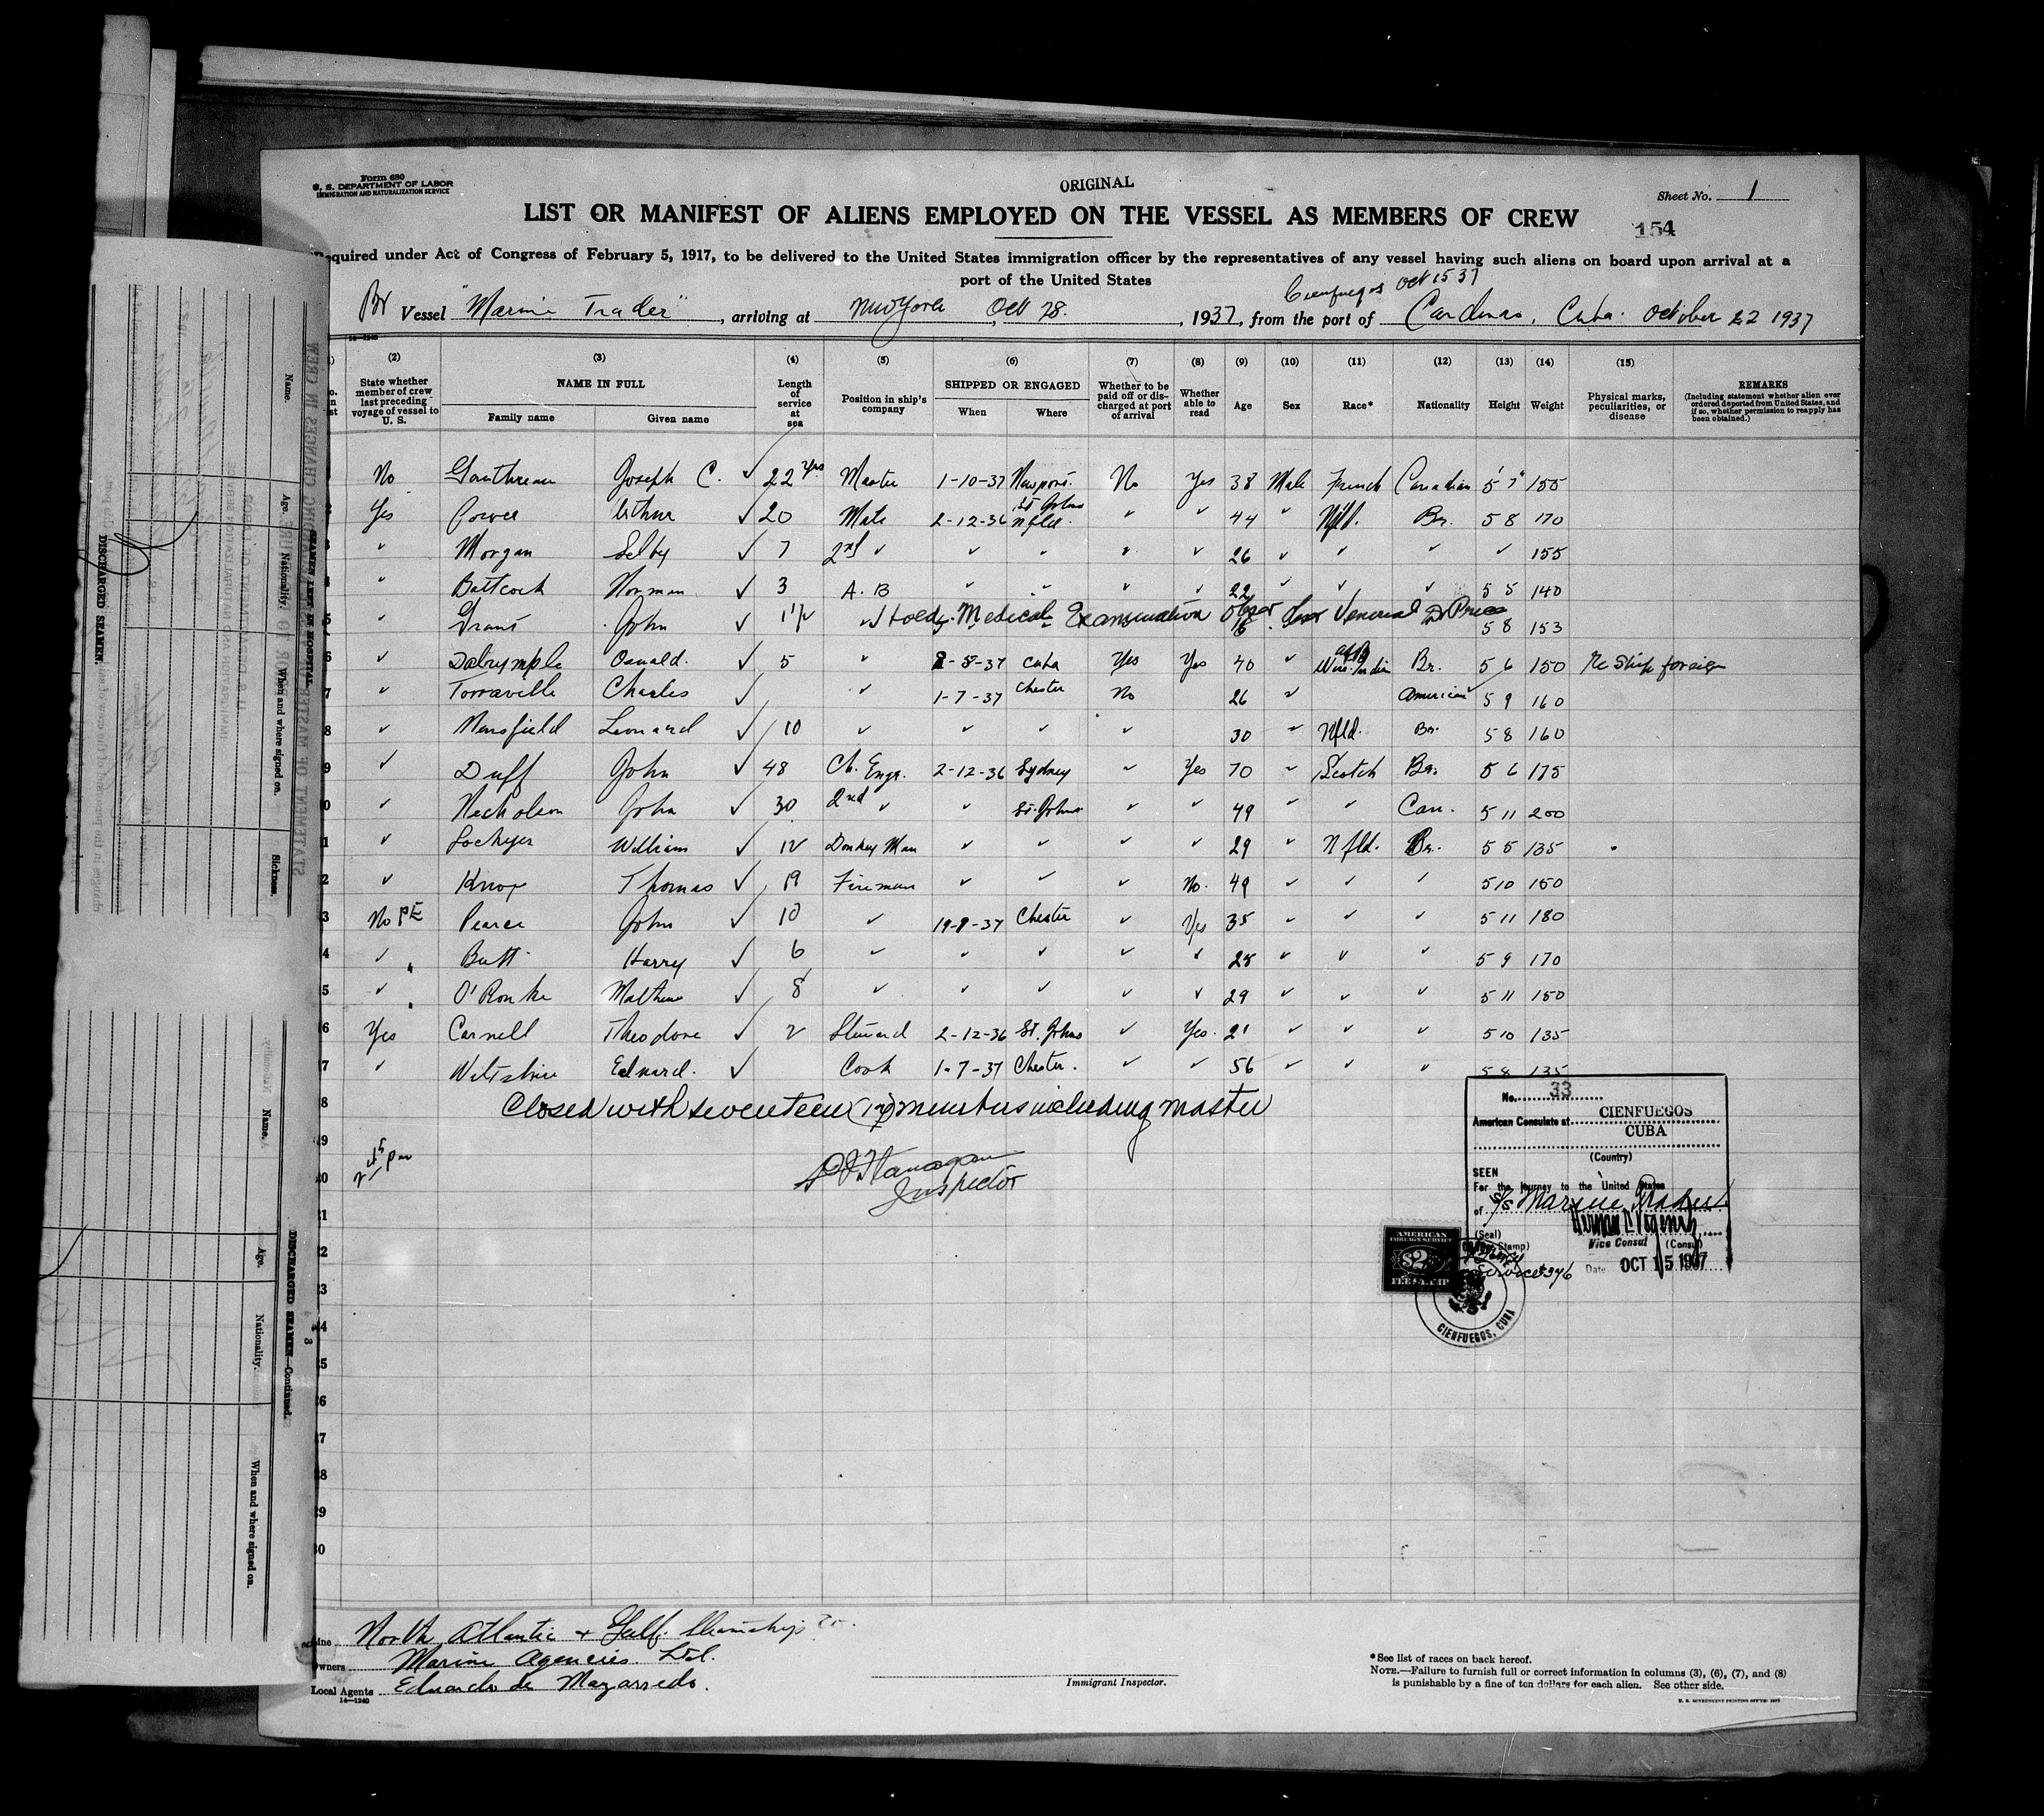 Form 680
U. S. DEPARTMENT OF LABOR
IMMIGRATION AND NATURALIZATION SERVICE
ORIGINAL
Sheet No. 1
LIST OR MANIFEST OF ALIENS EMPLOYED ON THE VESSEL AS MEMBERS OF CREW
154
Required under Act of Congress of February 5, 1917, to be delivered to the United States immigration officer by the representatives of any vessel having such aliens on board upon arrival at a
port of the United States
Cienfuegos Oct 15 37
Br Vessel "Marine Trader", arriving at New York Oct 28., 1937, from the port of Cardenas, Cuba. October 22 1937
14—1240
(2) (3) (4) (5) (6) (7) (8) (9) (10) (11) (12) (13) (14) (15)
State whether member of crew last preceding voyage of vessel to U. S.
NAME IN FULL
Family name Given name
Length of service at sea
Position in ship's company
SHIPPED OR ENGAGED
When Where
Whether to be paid off or discharged at port of arrival
Whether able to read
Age Sex Race* Nationality Height Weight
Physical marks, peculiarities, or disease
REMARKS
(Including statement whether alien ever ordered deported from United States, and if so, whether permission to reapply has been obtained.)
No Gouthreau Joseph C. ✓ 22 yrs Master 1-10-37 Newport. No Yes 38 Male French Canadian 5' 7" 155
Yes Power Arthur ✓ 20 Mate 2-12-36 St Johns Nfld. " " 44 " Nfld. Br. 5 8 170
3 " Morgan Selby ✓ 7 2nd ✓ ✓ ✓ " ✓ 26 ✓ ✓ ✓ ✓ 155
4 " Battcock Norman ✓ 3 A. B ✓ ✓ ✓ ✓ 22 ✓ ✓ ✓ 5 5 140
5 " Grant John ✓ 1½ ✓ Held Medical Examination Obser for Venereal 16 5 8 153
6 ✓ Dalrymple Oswald. ✓ 5 ✓ 8-37 Cuba Yes Yes 40 ✓ West Indian Br. 5 6 150 Re Ship foreign
7 ✓ Torraville Charles ✓ ✓ 1-7-37 Chester No 26 ✓ American 5 9 160
8 ✓ Mansfield Leonard ✓ 10 ✓ ✓ ✓ ✓ 30 ✓ Nfld. Br. 5 8 160
9 ✓ Duff John ✓ 48 Ch. Engr. 2-12-36 Sydney ✓ Yes 70 ✓ Scotch Br. 5 6 175
0 ✓ Nicholson John ✓ 30 2nd ✓ ✓ St. Johns ✓ ✓ 49 ✓ ✓ Can. 5 11 200
1 ✓ Lockyer William ✓ 12 Donkey Man ✓ ✓ ✓ ✓ 29 ✓ Nfld. Br. 5 5 135
2 ✓ Knox Thomas ✓ 19 Fireman ✓ ✓ ✓ No. 49 ✓ ✓ ✓ 5 10 150
3 No PE Pearce John ✓ 10 ✓ 37 Chester ✓ Yes 35 ✓ ✓ ✓ 5 11 180
4 ✓ Butt Harry ✓ 6 ✓ ✓ ✓ ✓ ✓ 28 ✓ ✓ ✓ 5 9 170
5 ✓ O'Rourke Mathew ✓ 8 ✓ ✓ ✓ ✓ ✓ 29 ✓ ✓ ✓ 5 11 150
6 Yes Carnell Theodore ✓ 2 Steward 2-12-36 St. Johns ✓ Yes. 21 ✓ ✓ ✓ 5 10 135
7 ✓ Wiltshire Edward. ✓ Cook 1-7-37 Chester. ✓ ✓ 56 ✓ ✓ ✓ 5 8 135
8 Closed with seventeen (17) members including master
9
2 45 pm
Flanagan
Inspector
0
21
22
23
24
25
26
27
28
29
30
No. 33
American Consulate at CIENFUEGOS
CUBA
(Country)
SEEN
For the journey to the United States
of S/S Marine Trader
(Seal)
Vice Consul (Consul)
Date OCT 15 1937
AMERICAN
FOREIGN SERVICE
$2
FEE STAMP
Service 376
CIENFUEGOS, CUBA
Line North Atlantic & Gulf Steamship Co.
Owners Marine Agencies Ltd.
Local Agents Eduardo de Mazarredo.
14—1240
Immigrant Inspector.
*See list of races on back hereof.
NOTE.—Failure to furnish full or correct information in columns (3), (6), (7), and (8)
is punishable by a fine of ten dollars for each alien. See other side.
DISCHARGED SEAMEN.
Name. Age. Nationality. When and where signed on. Sickness.
SEAMEN LEFT IN HOSPITAL
STATEMENT OF MASTER REGARDING CHANGES IN CREW
DISCHARGED SEAMEN—Continued.
Name. Age. Nationality. When and where signed on.